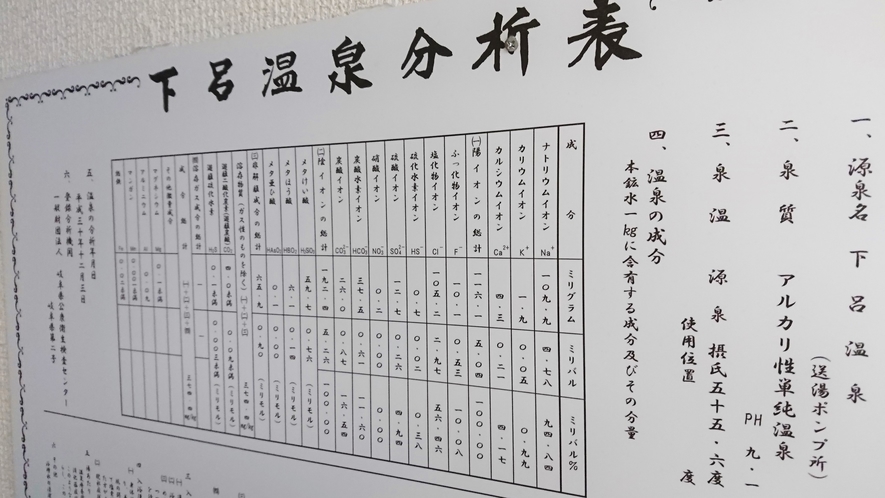 下呂温泉分析表
一、源泉名 下呂温泉
(送湯ポンプ所)
二、泉質 アルカリ性単純温泉
PH 九・一
三、泉温 源泉 摂氏五十五・六度
使用位置 度
四、温泉の成分
本鉱水一kgに含有する成分及びその分量
成分 ミリグラム ミリバル ミリバル%
ナトリウムイオン Na⁺ 一〇九・九 四・七八 九四・八四
カリウムイオン K⁺ 一・九 〇・〇五 〇・九九
カルシウムイオン Ca²⁺ 四・三 〇・二一 四・一七
(一)陽イオンの総計 一一六・一 五・〇四 一〇〇・〇〇
ふっ化物イオン F⁻ 一〇・一 〇・五三 一〇・〇八
塩化物イオン Cl⁻ 一〇五・二 二・九七 五六・四六
硫化水素イオン HS⁻ 〇・七 〇・〇二 〇・三八
硫酸イオン SO₄²⁻ 一二・七 〇・二六 四・九四
硝酸イオン NO₃⁻ 〇・二 〇・〇〇 〇・〇〇
炭酸水素イオン HCO₃⁻ 三七・五 〇・六一 一一・六〇
炭酸イオン CO₃²⁻ 二六・〇 〇・八七 一六・五四
(二)陰イオンの総計 一九二・四 五・二六 一〇〇・〇〇
メタけい酸 H₂SiO₃ 五九・七 〇・七六 (ミリモル)
メタほう酸 HBO₂ 六・一 〇・一四 (ミリモル)
メタ亜ひ酸 HAsO₂ 〇・一 〇・〇〇 (ミリモル)
(三)非解離成分の総計 六五・九 〇・九〇 (ミリモル)
溶存物質(ガス性のものを除く) (一)+(二)+(三) 三七四・四 mg/kg
遊離二酸化炭素(遊離炭酸) CO₂ 四・〇未満 〇・〇九未満 (ミリモル)
遊離硫化水素 H₂S 〇・一未満 〇・〇〇三未満 (ミリモル)
溶存ガス成分の総計
成分総計 三七四・四 mg/kg
その他微量成分
マグネシウム Mg 〇・一未満
アルミニウム Al 〇・〇九
マンガン Mn
総鉄 Fe
五、温泉の分析年月日
平成三十年十二月三日
六、登録分析機関
一般財団法人 岐阜県公衆衛生検査センター
岐阜県第二号